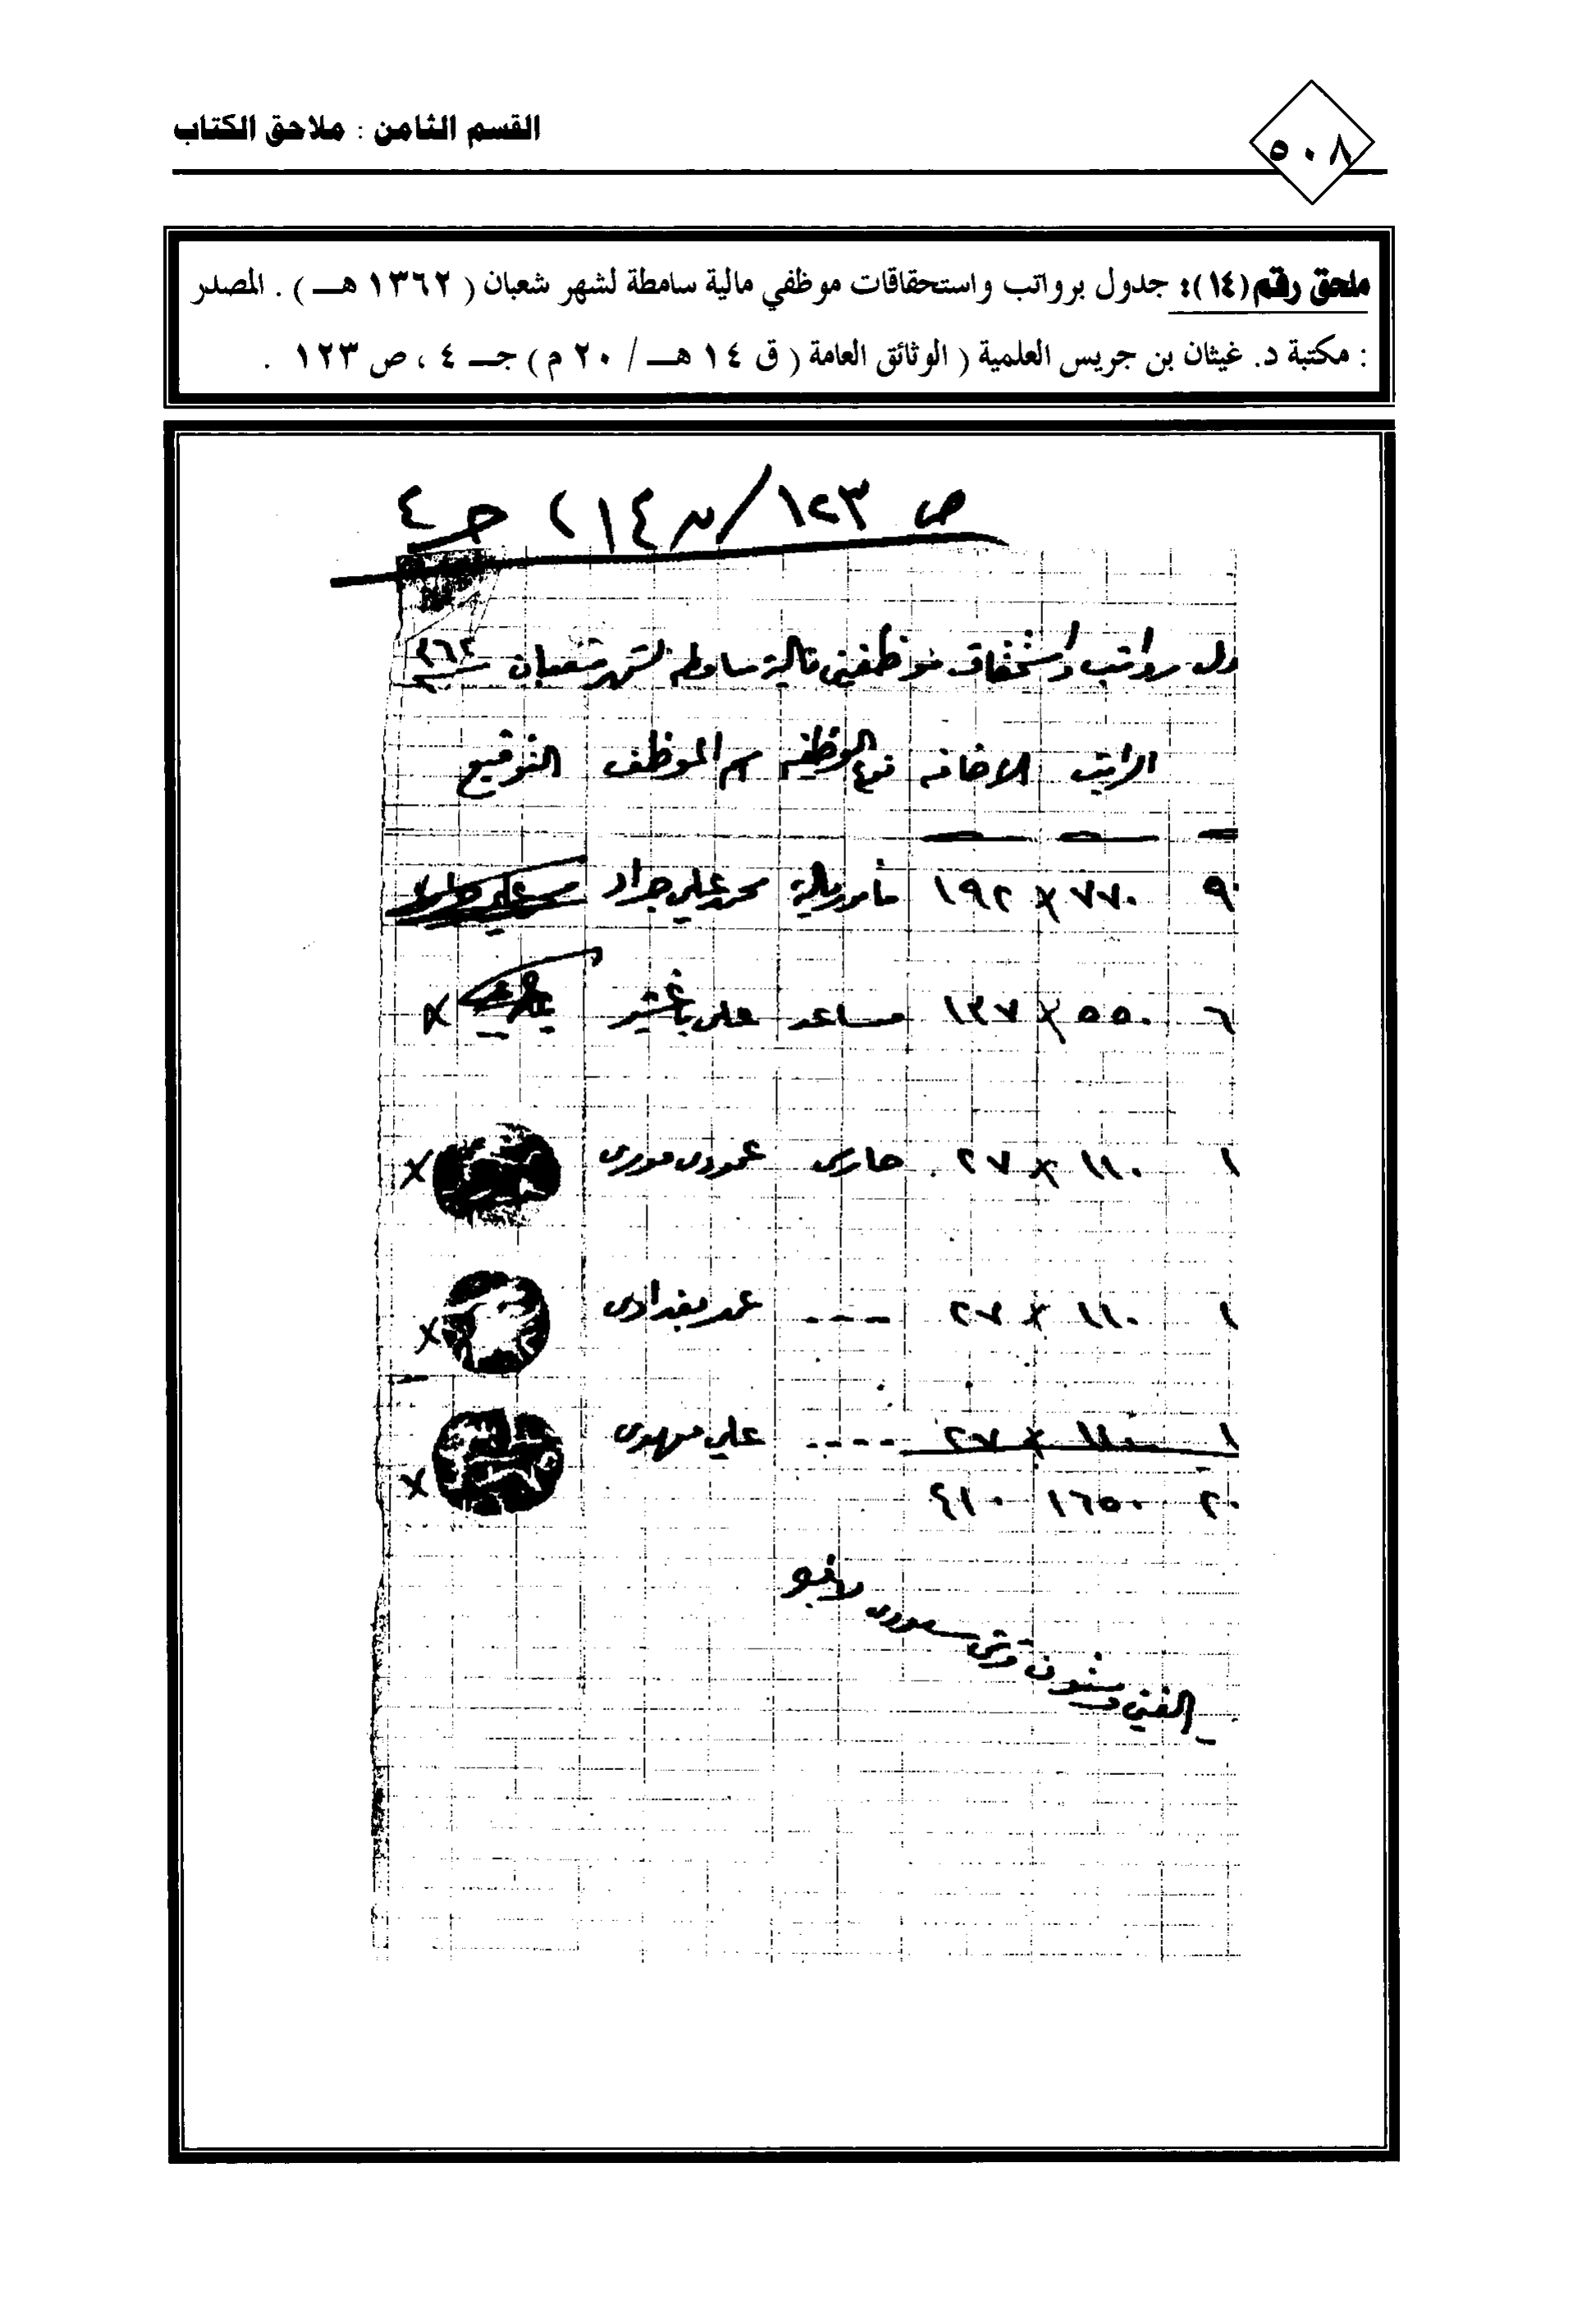 ٥٠٨
القسم الثامن : ملاحق الكتاب
ملحق رقم (١٤): جدول برواتب واستحقاقات موظفي مالية سامطة لشهر شعبان ( ١٣٦٢ هـــ ) . المصدر
: مكتبة د. غيثان بن جريس العلمية ( الوثائق العامة ( ق ١٤ هـــ / ٢٠ م ) جـــ ٤ ، ص ١٢٣ .
ص ١٢٣/ ١٤ حـ ٤
ول رواتب واستحقاق موظفين مالية سامطه لشهر شعبان ٣٦٢
الراتب الاضافه نوع الوظيفه اسم الموظف التوقيع
٩٠ ٧٧٠ × ١٩٢ مأمور مالية محمد علي جراد
٦ ٥٥٠ × ١٣٧ مساعد على باعشير ×
١ ١١٠ × ٢٧ حارس ×
١ ١١٠ × ٢٧ ---- بغدادى ×
١ ١١٠ × ٢٧ ---- علي مهدى ×
٢٠ ١٦٥٠ ٤١٠
قرش سعودى لاغير